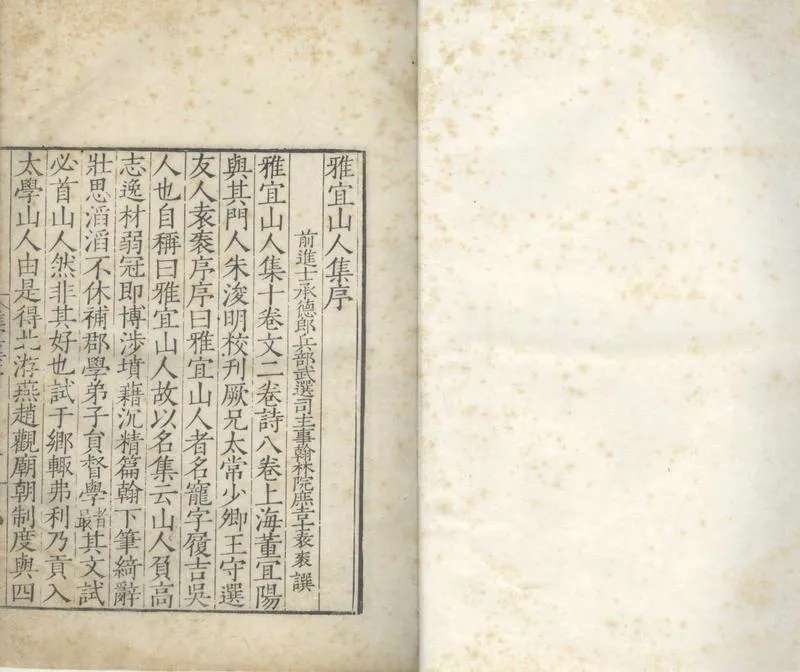 雅宜山人集序
前進士承德郎兵部武選司主事翰林院庶吉士袁袠譔
雅宜山人集十卷文二卷詩八卷上海董宜陽
與其門人朱浚明校刊厥兄太常少卿王守選
友人袁袠序序曰雅宜山人者名寵字履吉吳
人也自稱曰雅宜山人故以名集云山人負高
志逸材弱冠即博涉墳藉沉精篇翰下筆綺辭
壯思滔滔不休補郡學弟子員督學者最其文試
必首山人然非其好也試于鄉輙弗利乃貢入
太學山人由是得北游燕趙觀廟朝制度與四